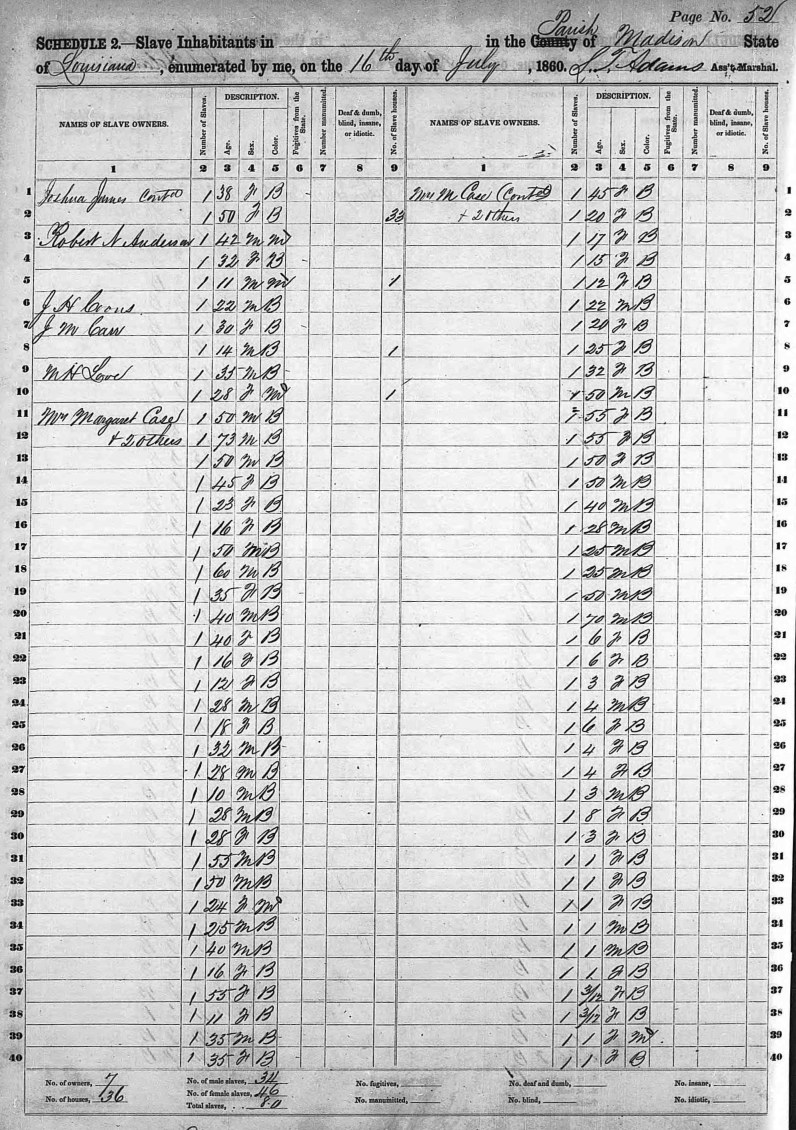 Page No. 52
SCHEDULE 2.—Slave Inhabitants in in the County Parish of Madison State
of Louisiana, enumerated by me, on the 16th day of July, 1860. S. T. Adams Ass't Marshal.
NAMES OF SLAVE OWNERS. Number of Slaves. DESCRIPTION. Age. Sex. Color. Fugitives from the State. Number manumitted. Deaf & dumb, blind, insane, or idiotic. No. of Slave houses. NAMES OF SLAVE OWNERS. Number of Slaves. DESCRIPTION. Age. Sex. Color. Fugitives from the State. Number manumitted. Deaf & dumb, blind, insane, or idiotic. No. of Slave houses.
1 2 3 4 5 6 7 8 9 1 2 3 4 5 6 7 8 9
1 Joshua James Contd 1 38 F B Mrs M Case Contd 1 45 F B 1
2 1 50 F B 33 + 2 others 1 20 F B 2
3 Robert N Anderson 1 42 M M 1 17 F B 3
4 1 32 F B 1 15 F B 4
5 1 11 M M 1 1 12 F B 5
6 J H Coons 1 22 M B 1 22 M B 6
7 J M Carr 1 30 F B 1 20 F B 7
8 1 14 M B 1 1 25 F B 8
9 M H Lowe 1 35 M B 1 32 F B 9
10 1 28 F M 1 1 50 M B 10
11 Mrs Margaret Case 1 50 M B 1 55 F B 11
12 + 2 others 1 73 M B 1 55 F B 12
13 1 50 M B 1 50 F B 13
14 1 45 F B 1 50 M B 14
15 1 23 F B 1 40 M B 15
16 1 16 F B 1 28 M B 16
17 1 50 M B 1 25 M B 17
18 1 60 M B 1 25 M B 18
19 1 35 F B 1 50 M B 19
20 1 40 M B 1 70 M B 20
21 1 40 F B 1 6 F B 21
22 1 16 F B 1 6 F B 22
23 1 12 F B 1 3 F B 23
24 1 28 M B 1 4 M B 24
25 1 18 F B 1 6 F B 25
26 1 32 M B 1 4 F B 26
27 1 28 M B 1 4 F B 27
28 1 10 M B 1 3 M B 28
29 1 28 M B 1 8 F B 29
30 1 28 F B 1 3 F B 30
31 1 55 M B 1 1 F B 31
32 1 50 M B 1 1 F B 32
33 1 24 F M 1 1 F B 33
34 1 25 M B 1 1 M B 34
35 1 40 M B 1 1 M B 35
36 1 16 F B 1 1 F B 36
37 1 55 F B 1 3/12 F B 37
38 1 11 F B 1 3/12 F B 38
39 1 35 M B 1 1 F M 39
40 1 35 F B 1 1 F B 40
No. of owners, 7 No. of male slaves, 34 No. fugitives, No. deaf and dumb, No. insane,
No. of houses, 36 No. of female slaves, 46 No. manumitted, No. blind, No. idiotic,
Total slaves, 80